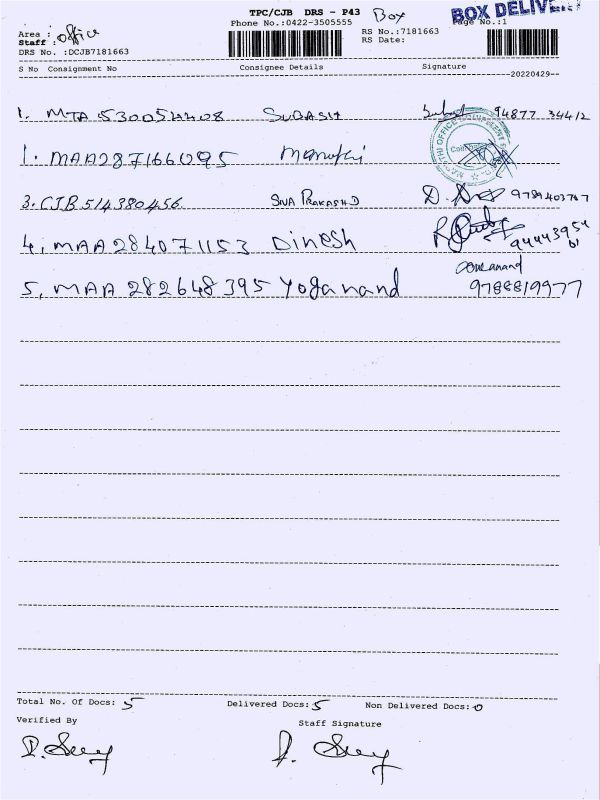 TPC/CJB DRS - P43 Box BOX DELIVERY
Phone No.:0422-3505555 Page No.:1
Area : office RS No.:7181663
Staff : RS Date:
DRS No. :DCJB7181663
S No Consignment No Consignee Details Signature
20220429
1. MTA 530054408 SUGASH 94877 34412
1. MAA287166095
3. CJB 514380456 SIVA PRAKASH D 9789403767
4. MAA 284071153 Dinesh
5. MAA 282648395 Yoganand 9788819977
Total No. Of Docs: 5 Delivered Docs: 5 Non Delivered Docs: 0
Verified By Staff Signature